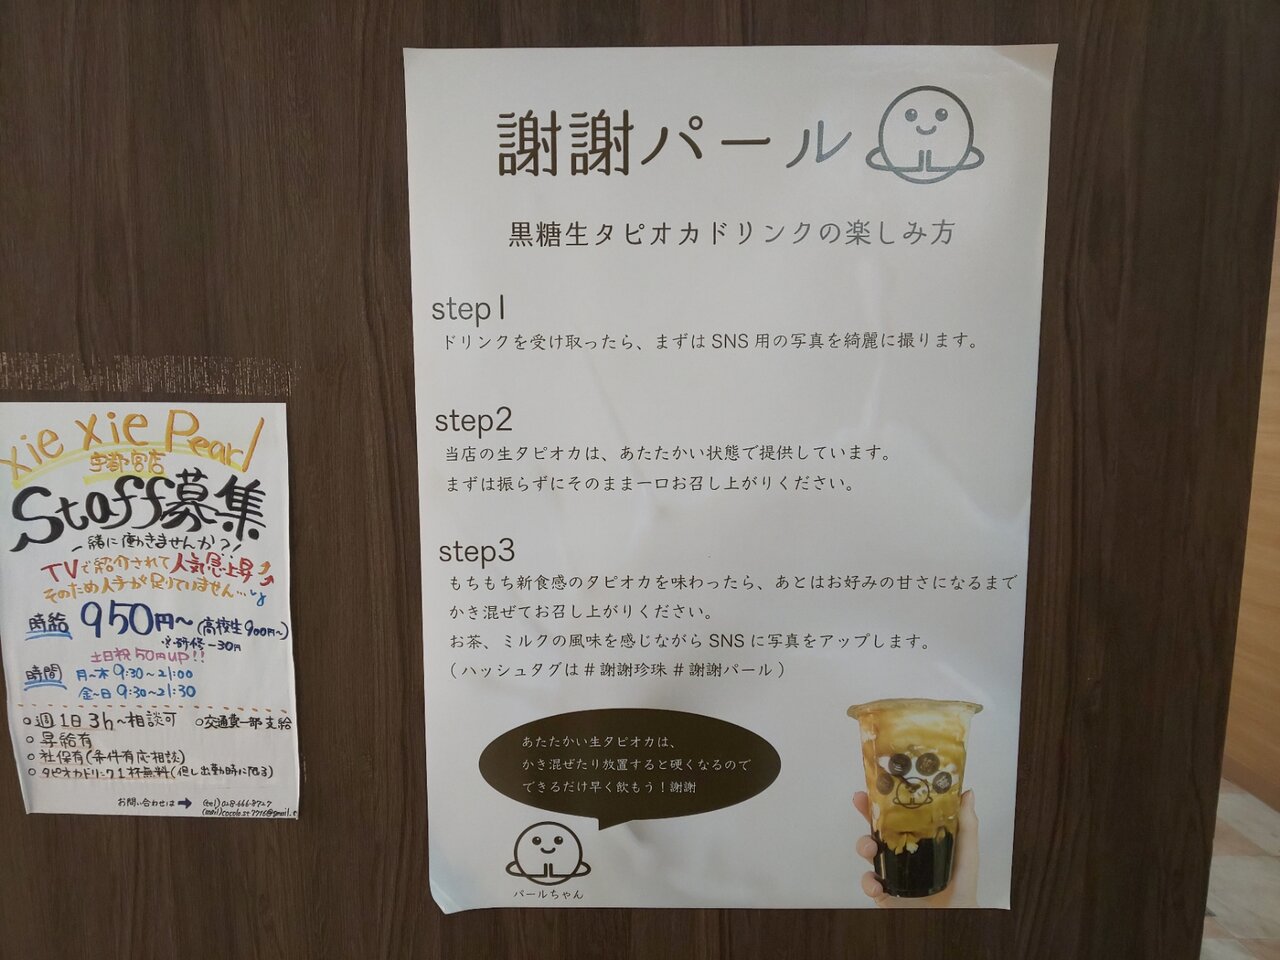 謝謝パール
黒糖生タピオカドリンクの楽しみ方
step1
ドリンクを受け取ったら、まずは SNS 用の写真を綺麗に撮ります。
step2
当店の生タピオカは、あたたかい状態で提供しています。
まずは振らずにそのまま一口お召し上がりください。
step3
もちもち新食感のタピオカを味わったら、あとはお好みの甘さになるまで
かき混ぜてお召し上がりください。
お茶、ミルクの風味を感じながら SNS に写真をアップします。
(ハッシュタグは # 謝謝珍珠 # 謝謝パール)
あたたかい生タピオカは、
かき混ぜたり放置すると硬くなるので
できるだけ早く飲もう！謝謝
パールちゃん
xie xie Pearl
宇都宮店
Staff募集
一緒に働きませんか?!
TVで紹介されて人気急上昇
そのため人手が足りていません…
時給 950円〜(高校生900円〜)
※研修-30円
土日祝50円up!!
時間 月〜木 9:30〜21:00
金〜日 9:30〜21:30
○週1日3h〜相談可 ○交通費一部支給
○昇給有
○社保有(条件有応相談)
○タピオカドリンク1杯無料(但し出勤時に限る)
お問い合わせは➡ (tel) 028-666-8727